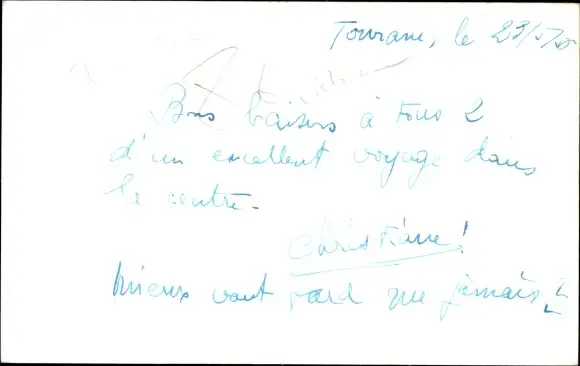 Tourane, le 23/5/
Bons baisers à tous 2
d'un excellent voyage dans
le centre.
Christiane!
Mieux vaut tard que jamais